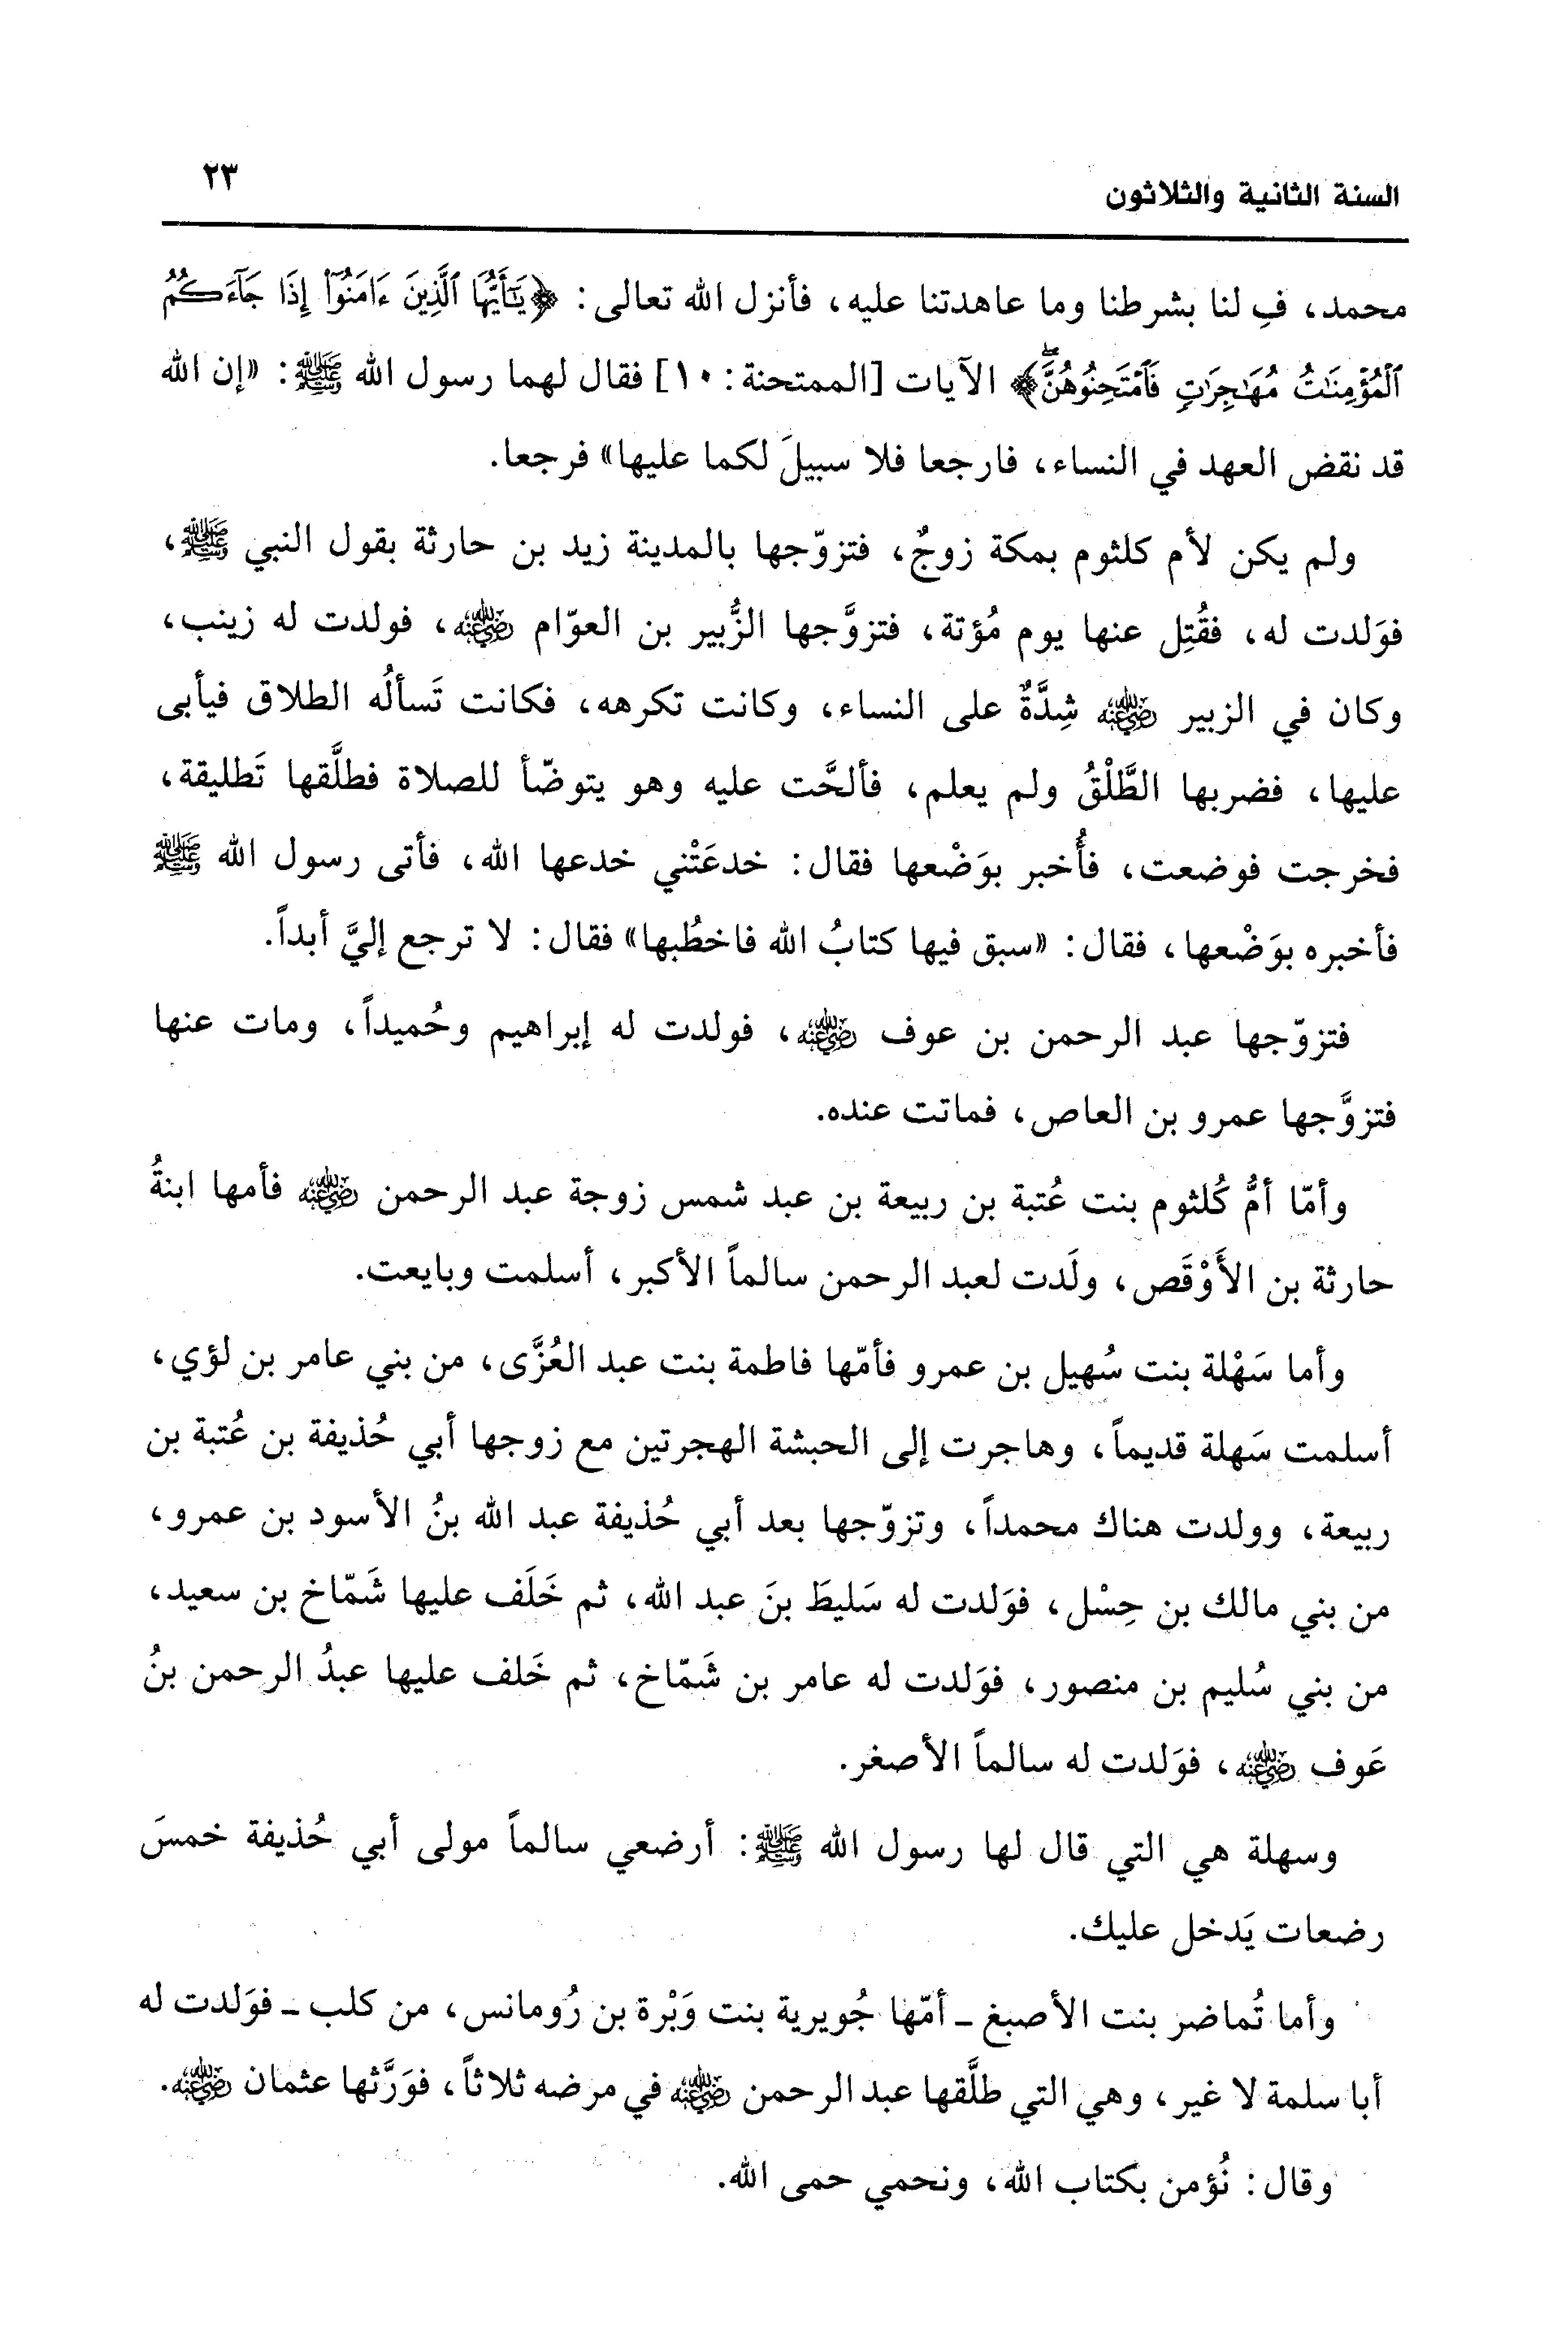 السنة الثانية والثلاثون ٢٣
محمد، فِ لنا بشرطنا وما عاهدتنا عليه، فأنزل الله تعالى: ﴿يَٰٓأَيُّهَا ٱلَّذِينَ ءَامَنُوٓا۟ إِذَا جَآءَكُمُ
ٱلْمُؤْمِنَٰتُ مُهَٰجِرَٰتٍ فَٱمْتَحِنُوهُنَّ ۖ﴾ الآيات [الممتحنة: ١٠] فقال لهما رسول الله ﷺ: «إن الله
قد نقض العهد في النساء، فارجعا فلا سبيلَ لكما عليها» فرجعا.
ولم يكن لأم كلثوم بمكة زوجٌ، فتزوّجها بالمدينة زيد بن حارثة بقول النبي ﷺ،
فوَلدت له، فقُتِل عنها يوم مُؤتة، فتزوَّجها الزُّبير بن العوّام رضي الله عنه، فولدت له زينب،
وكان في الزبير رضي الله عنه شِدَّةٌ على النساء، وكانت تكرهه، فكانت تَسألُه الطلاق فيأبى
عليها، فضربها الطَّلْقُ ولم يعلم، فألحَّت عليه وهو يتوضّأ للصلاة فطلَّقها تَطليقة،
فخرجت فوضعت، فأُخبر بوَضْعها فقال: خدعَتْني خدعها الله، فأتى رسول الله ﷺ
فأخبره بوَضْعها، فقال: «سبق فيها كتابُ الله فاخطُبها» فقال: لا ترجع إليَّ أبداً.
فتزوّجها عبد الرحمن بن عوف رضي الله عنه، فولدت له إبراهيم وحُميداً، ومات عنها
فتزوَّجها عمرو بن العاص، فماتت عنده.
وأمّا أمُّ كُلثوم بنت عُتبة بن ربيعة بن عبد شمس زوجة عبد الرحمن رضي الله عنه فأمها ابنةُ
حارثة بن الأَوْقَص، ولَدت لعبد الرحمن سالماً الأكبر، أسلمت وبايعت.
وأما سَهْلة بنت سُهيل بن عمرو فأمّها فاطمة بنت عبد العُزَّى، من بني عامر بن لؤي،
أسلمت سَهلة قديماً، وهاجرت إلى الحبشة الهجرتين مع زوجها أبي حُذيفة بن عُتبة بن
ربيعة، وولدت هناك محمداً، وتزوّجها بعد أبي حُذيفة عبد الله بنُ الأسود بن عمرو،
من بني مالك بن حِسْل، فوَلدت له سَليطَ بنَ عبد الله، ثم خَلَف عليها شَمّاخ بن سعيد،
من بني سُليم بن منصور، فوَلدت له عامر بن شَمّاخ، ثم خَلف عليها عبدُ الرحمن بنُ
عَوف رضي الله عنه، فوَلدت له سالماً الأصغر.
وسهلة هي التي قال لها رسول الله ﷺ: أرضعي سالماً مولى أبي حُذيفة خمسَ
رضعات يَدخل عليك.
وأما تُماضر بنت الأصبغ ـ أمّها جُويرية بنت وَبْرة بن رُومانس، من كلب ـ فوَلدت له
أبا سلمة لا غير، وهي التي طلَّقها عبد الرحمن رضي الله عنه في مرضه ثلاثاً، فوَرَّثها عثمان رضي الله عنه.
وقال: نُؤمن بكتاب الله، ونحمي حمى الله.